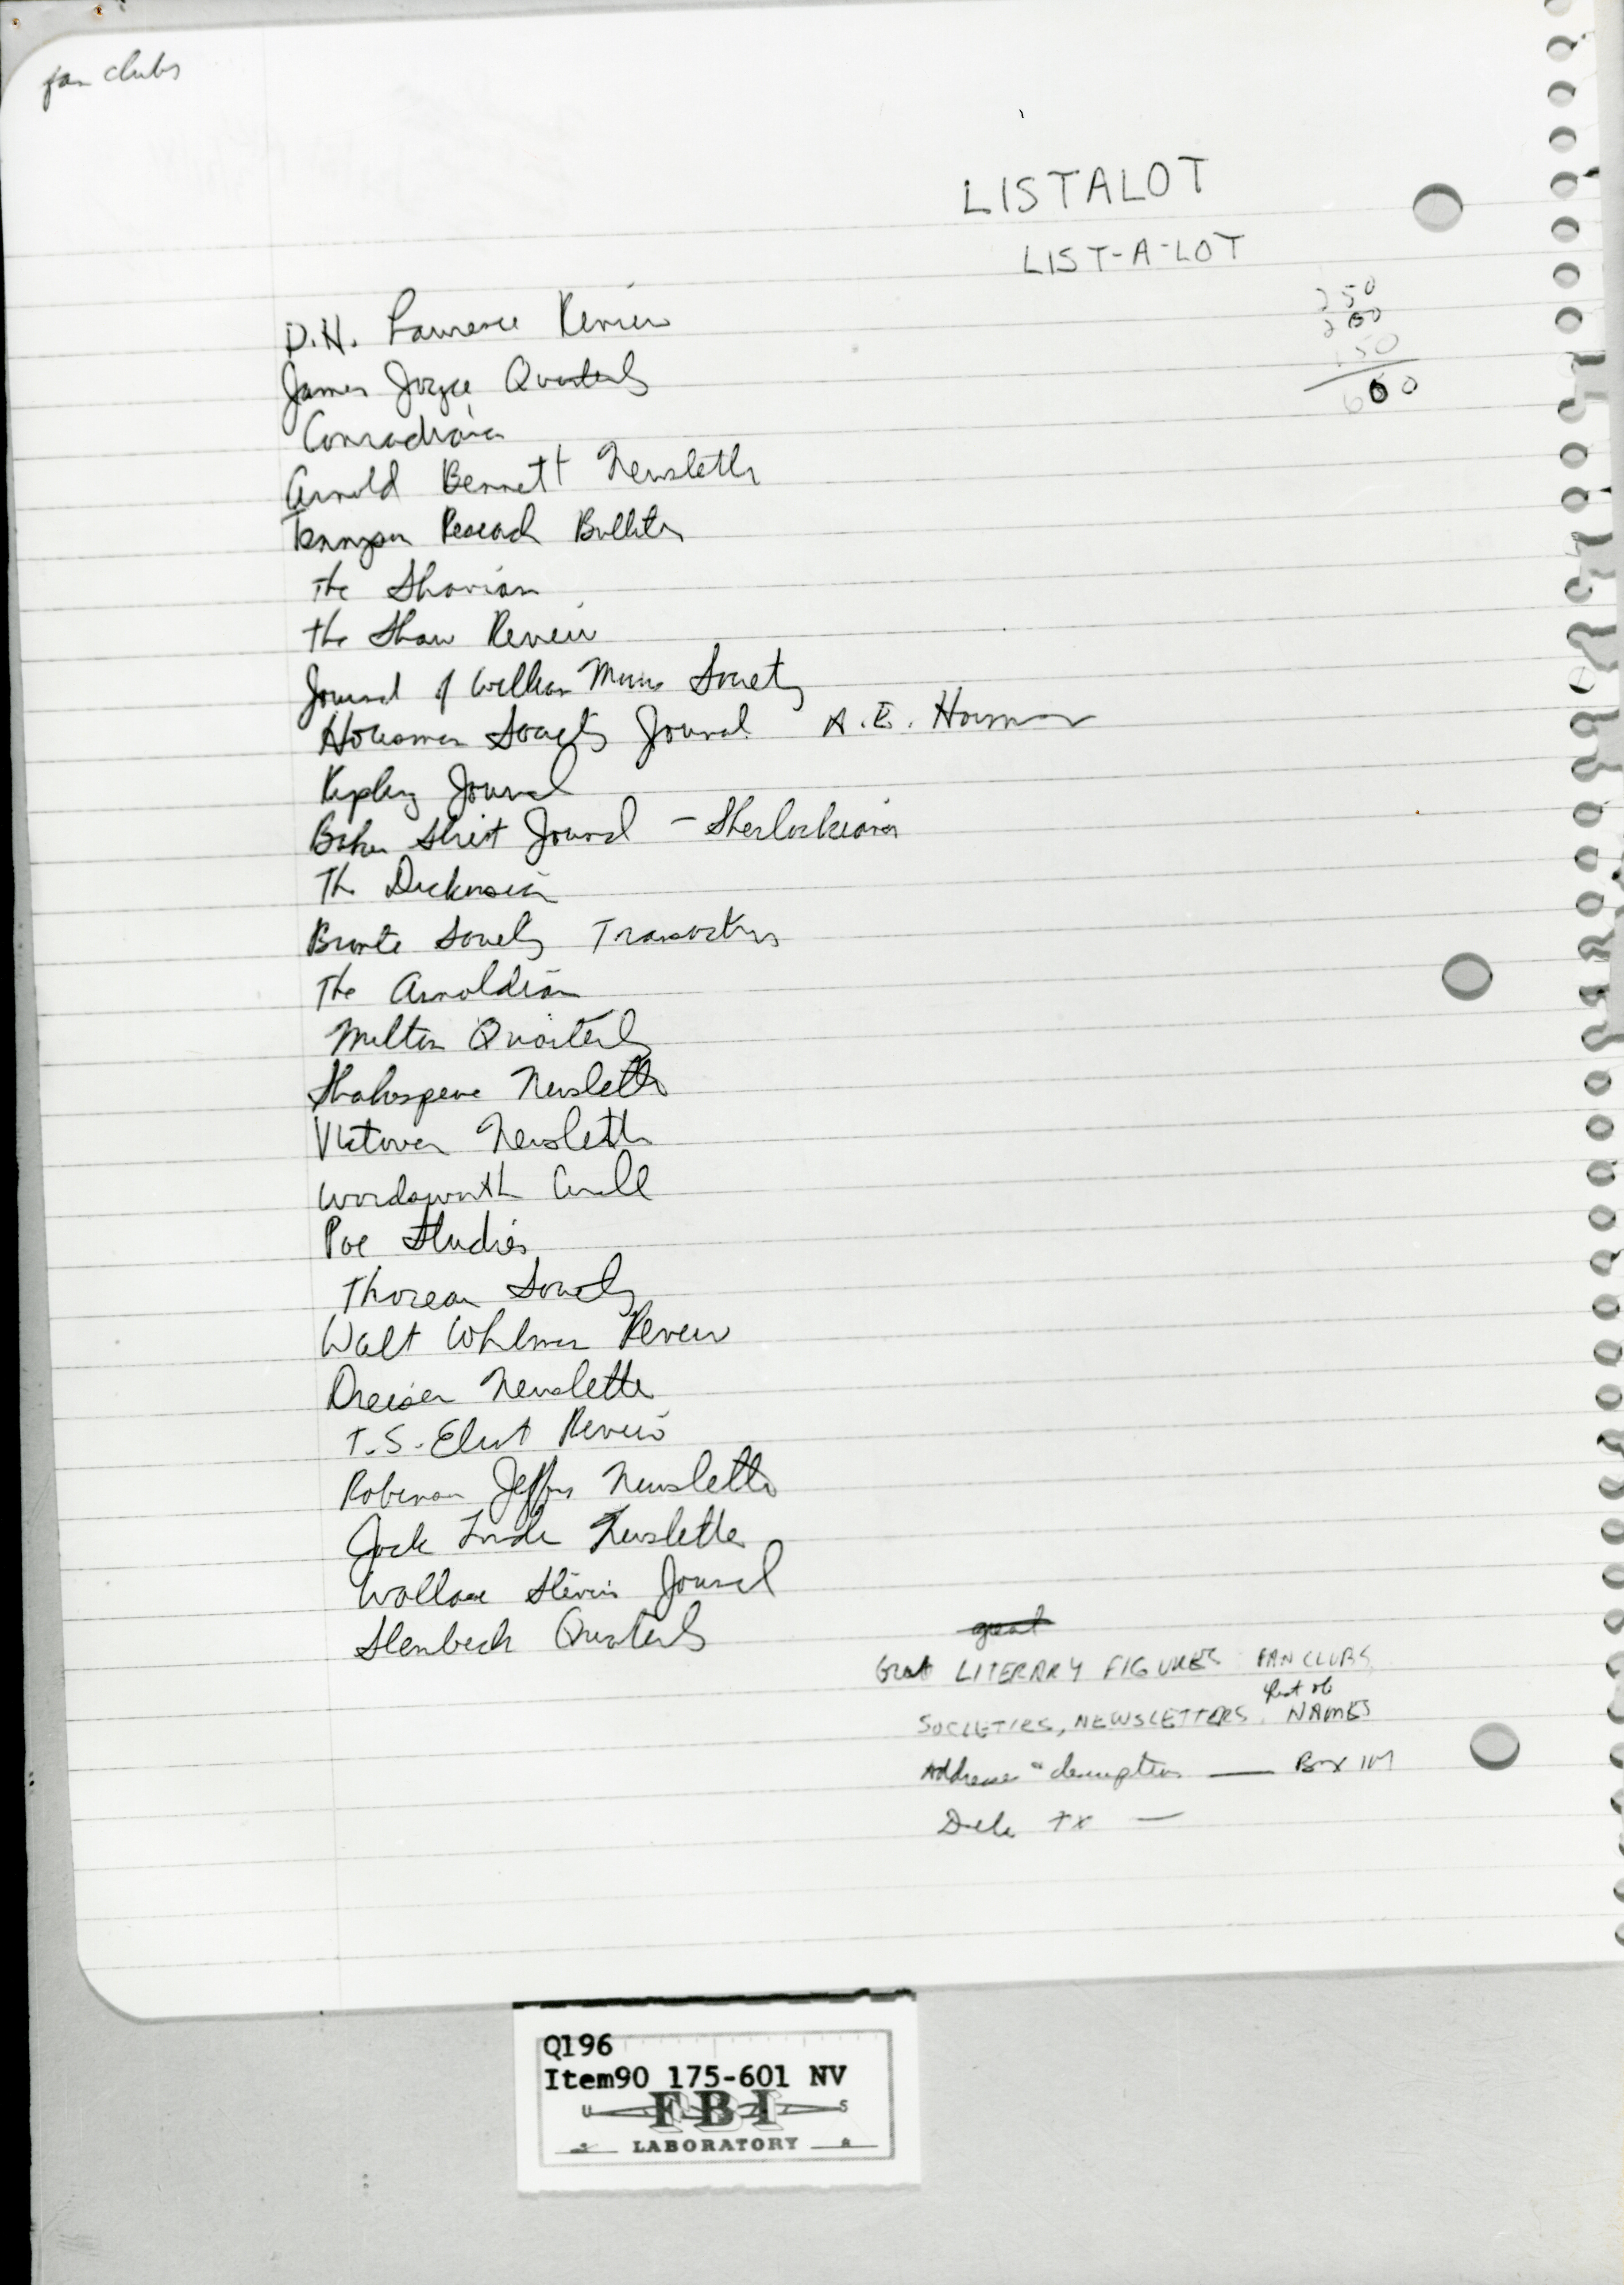 fan clubs
LISTALOT
LIST-A-LOT
250
200
150
600
D.H. Lawrence Review
James Joyce Quarterly
Conradiana
Arnold Bennett Newsletter
Tennyson Research Bulletin
The Shavian
The Shaw Review
Journal of William Morris Society
Housman Society Journal A.E. Housman
Kipling Journal
Baker Street Journal - Sherlockiana
The Dickensian
Bronte Society Transactions
The Arnoldian
Milton Quarterly
Shakespeare Newsletter
Victorian Newsletter
Wordsworth Circle
Poe Studies
Thoreau Society
Walt Whitman Review
Dreiser Newsletter
T.S. Eliot Review
Robinson Jeffers Newsletter
Jack London Newsletter
Wallace Stevens Journal
Steinbeck Quarterly
great
Great LITERARY FIGURES FAN CLUBS
list of
SOCIETIES, NEWSLETTERS. NAMES
Addresses descriptions — Box 1M
TX —
Q196
Item90 175-601 NV
U S
FBI
LABORATORY